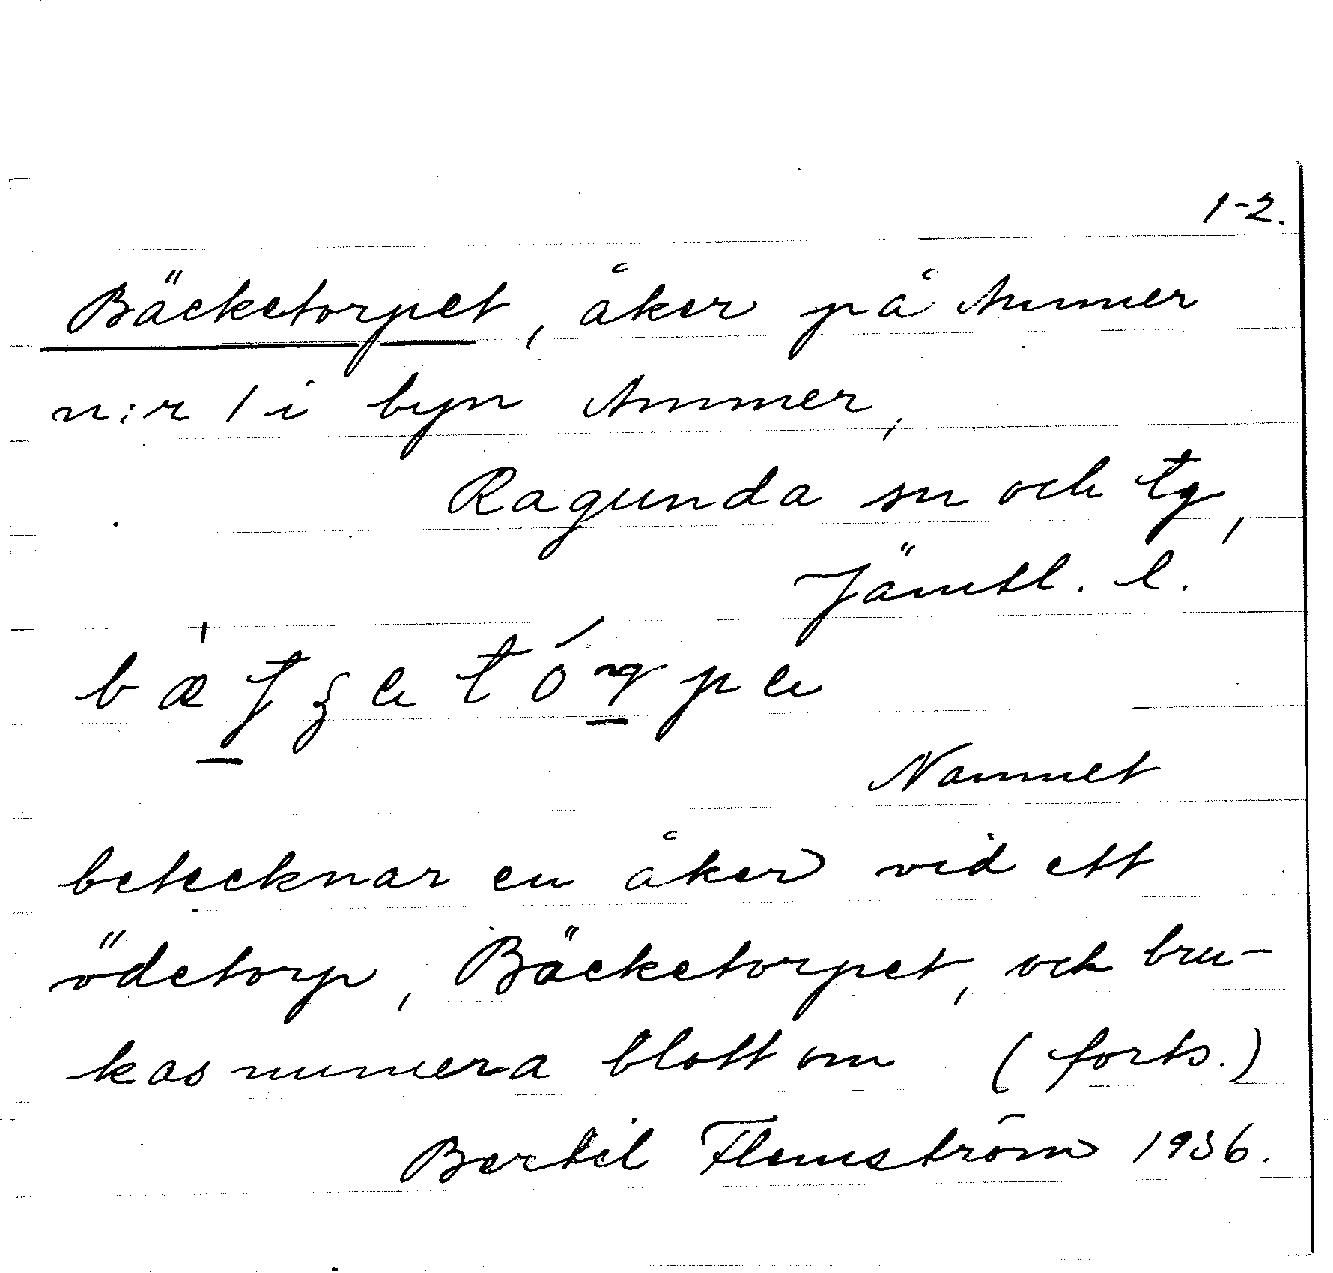 1-2.
Bäcketorpet, åker på Ammer
n:r 1 i byn Ammer,
Ragunda sn och tg,
Jämtl. l.
Namnet
betecknar en åker vid ett
ödetorp, Bäcketorpet, och bru-
kas numera blott om (forts.)
Bertil Flemström 1936.